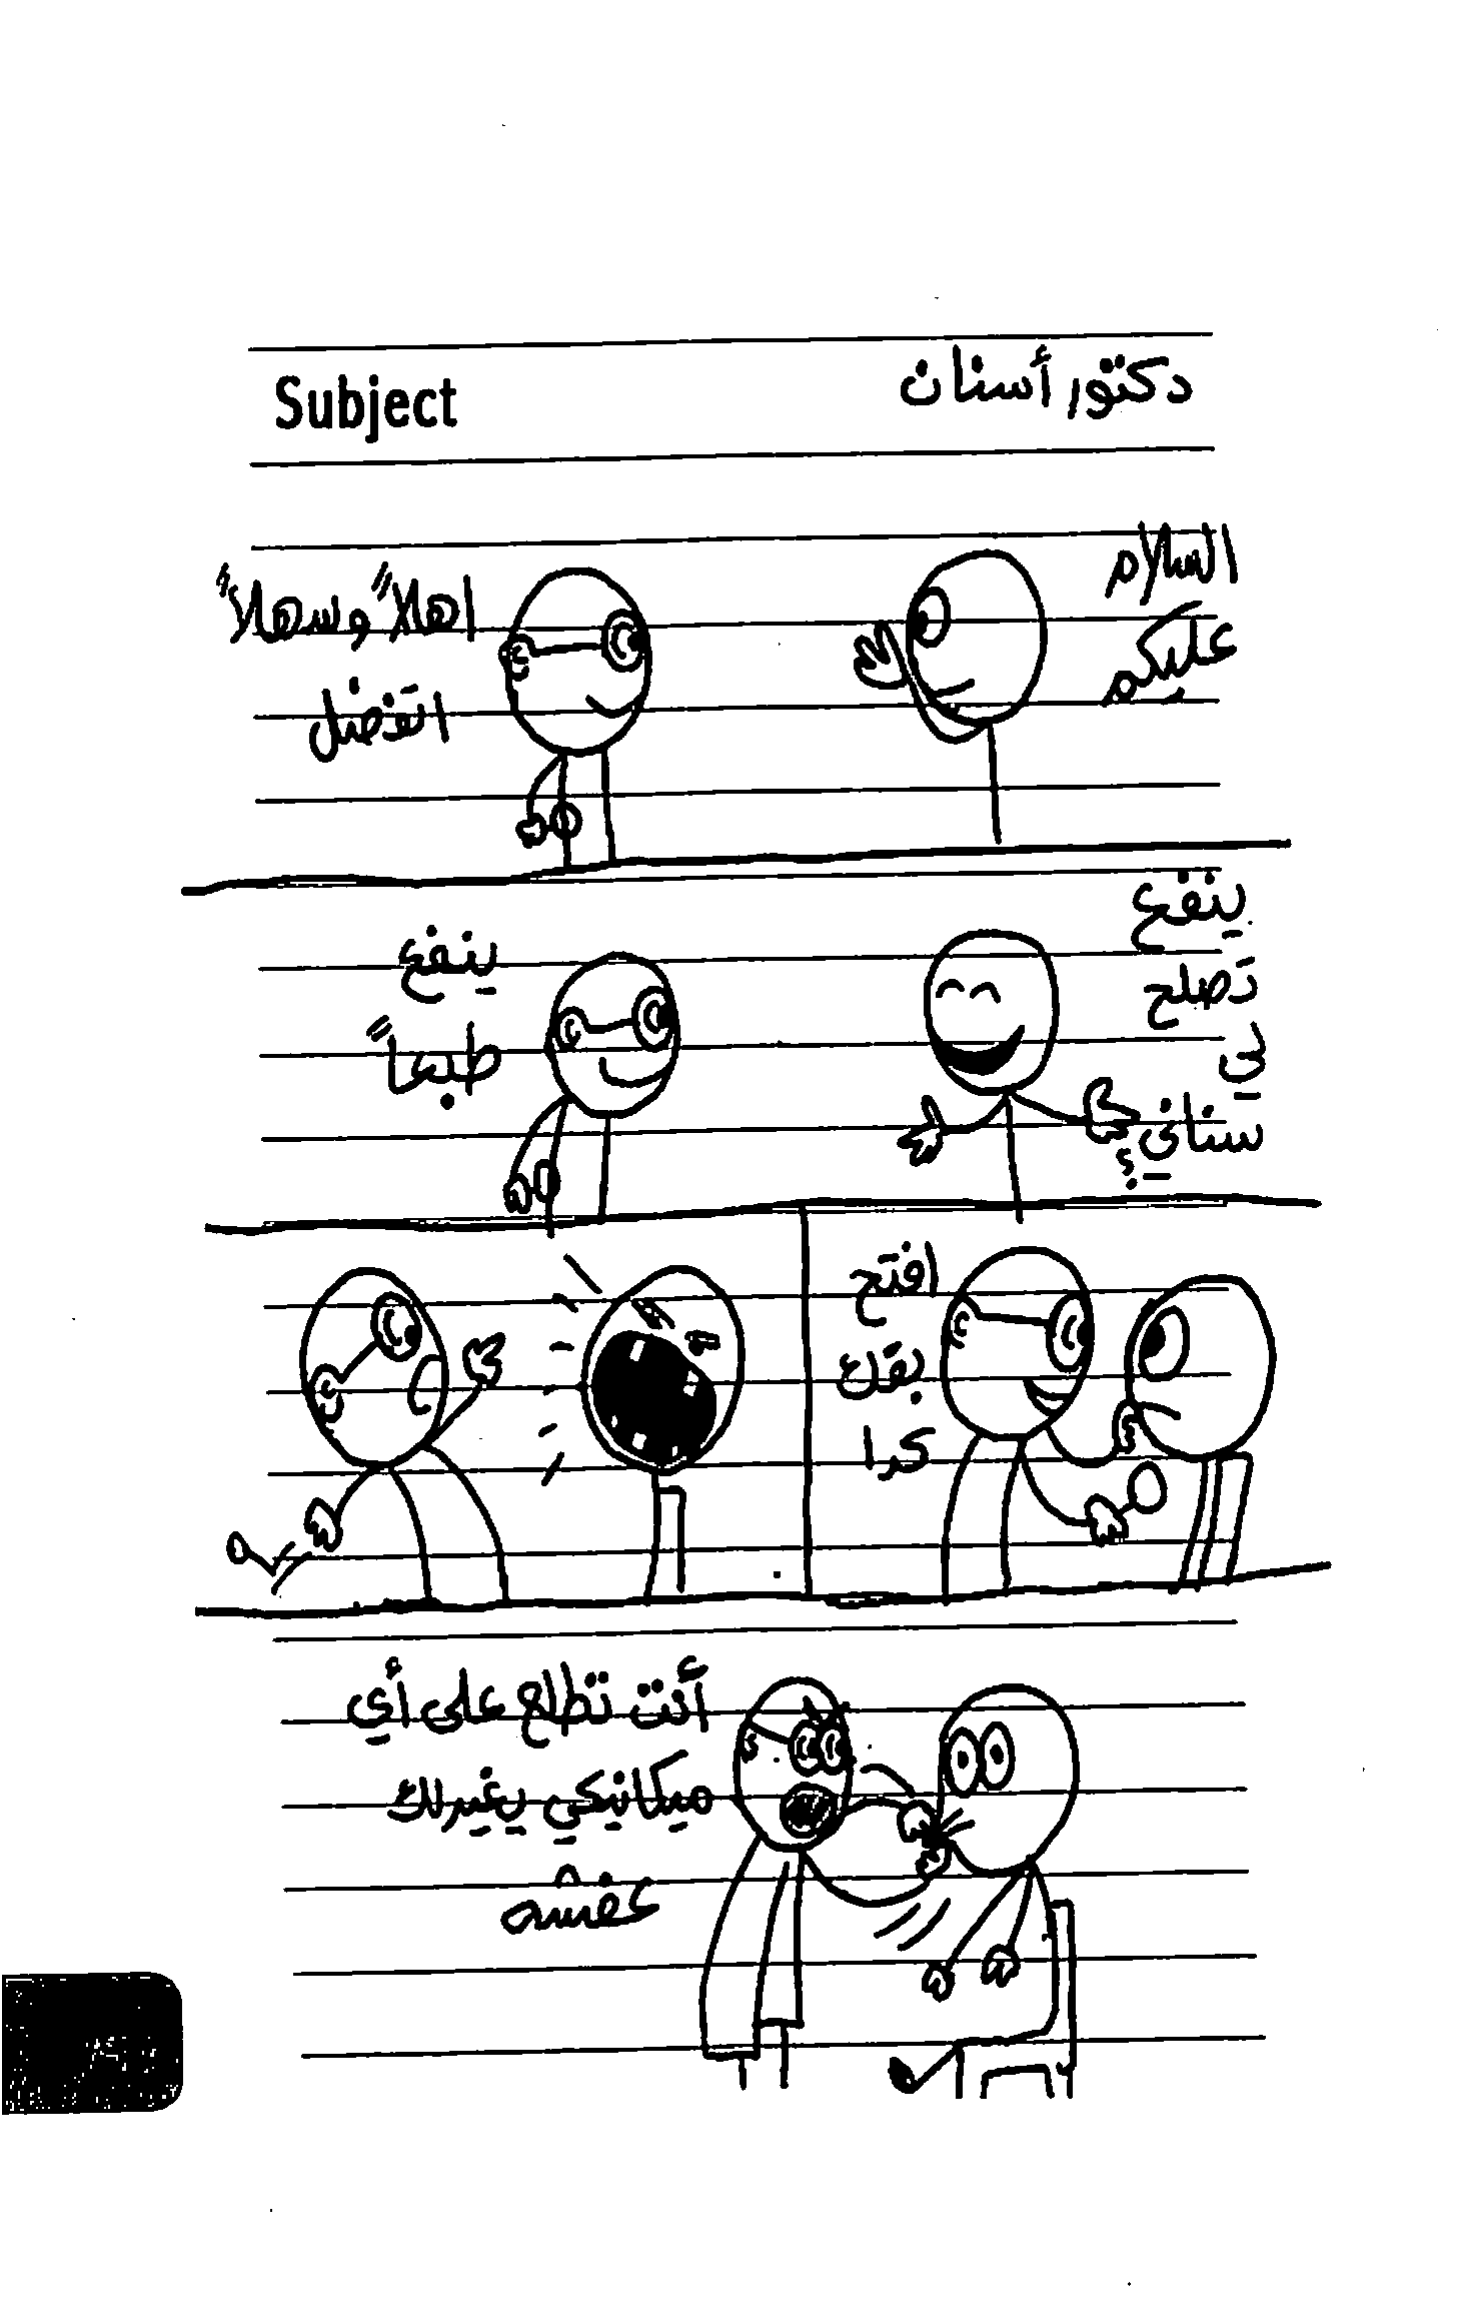 Subject
دكتور أسنان
السلام
عليكم
اهلاً وسهلاً
اتفضل
ينفع
تصلح
لي
سناني؟
ينفع
طبعاً
افتح
بقك
كدا
أنت تطلع على أي
ميكانيكي يغيرلك
عفشه